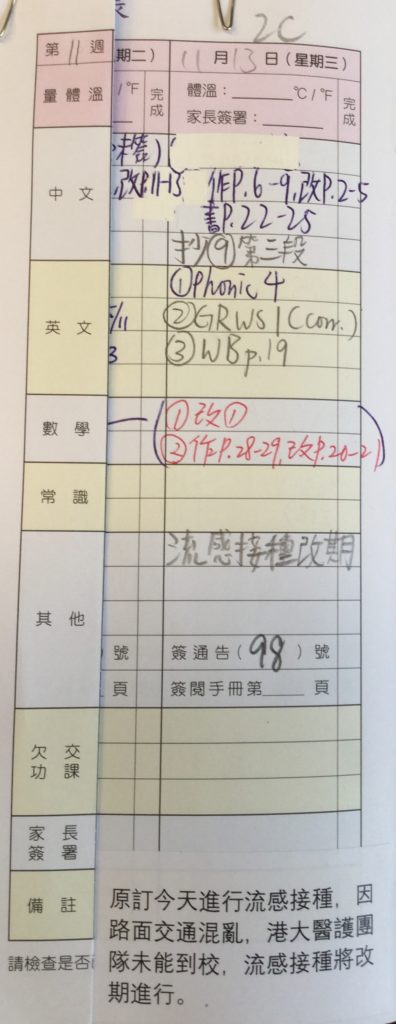 2C
第 11 週
期二）
11 月 13 日（星期三）
量 體 溫
/°F
完成
體溫：______°C / °F
家長簽署：______
完成
中 文
改P.11-13
作P.6-9,改P.2-5
書P.22-25
抄⑨第三段
英 文
①Phonic 4
/11
②GRWS1(corr.)
3
③WB p.19
數 學
①改①
②作P.28-29,改P.20-21
常 識
其 他
流感接種改期
）號
簽通告（98）號
頁
簽閱手冊第____頁
欠 交
功 課
家 長
簽 署
備 註
原訂今天進行流感接種，因
路面交通混亂，港大醫護團
隊未能到校，流感接種將改
期進行。
請檢查是否